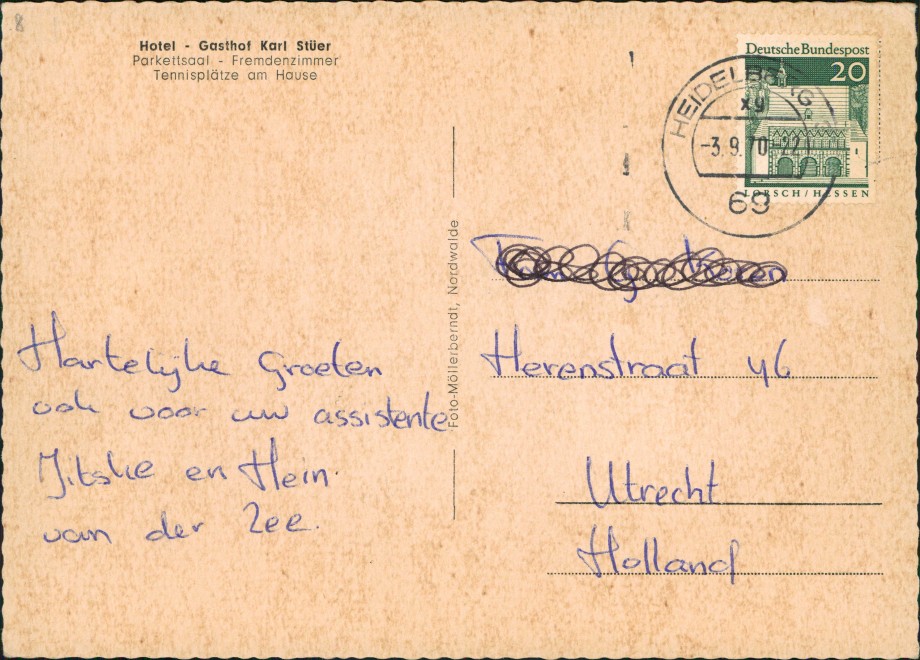 8
Hotel - Gasthof Karl Stüer
Parkettsaal - Fremdenzimmer
Tennisplätze am Hause
Deutsche Bundespost
20
LORSCH/HESSEN
HEIDELBERG
xy
-3.9.70-22
69
Foto-Möllerberndt, Nordwalde
Hartelijke Groeten
ook voor uw assistente
Jitske en Hein
van der Zee.
Herenstraat 46
Utrecht
Holland